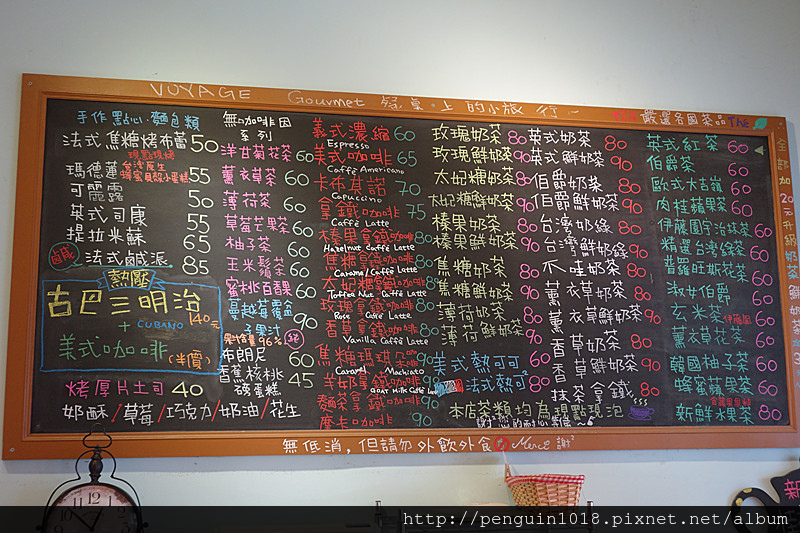 VOYAGE Gourmet 餐桌上的小旅行
嚴選各國茶品 The
手作點心.麵包類
法式焦糖烤布蕾 50
現點現烤
瑪德蓮
蜂蜜貝殼小蛋糕 50
可麗露
英式司康 55
提拉米蘇 65
鹹
法式鹹派 85
熱壓
古巴三明治 140元
+ CUBANO
美式咖啡 (半價)
烤厚片土司 40
奶酥/草莓/巧克力/奶油/花生
無咖啡因
系列
洋甘菊花茶 60
薰衣草茶 60
薄荷茶 60
草莓芒果茶 60
柚子茶 60
玉米鬚茶 60
蜜桃百匯 60
蔓越莓覆盆
子果汁 90
布朗尼 60
香蕉核桃
磅蛋糕 45
義式濃縮 60
Espresso
美式咖啡 65
Caffè Americano
卡布其諾 70
Capuccino
拿鐵咖啡 75
Caffè Latte
榛果拿鐵咖啡 80
Hazelnut Caffè Latte
焦糖拿鐵咖啡 80
Caramel Caffè Latte
太妃糖拿鐵咖啡 80
Toffee Nut Caffè Latte
玫瑰拿鐵咖啡 80
Rose Caffè Latte
香草拿鐵咖啡 80
Vanilla Caffè Latte
焦糖瑪琪朵 90
Caramel Machiato
羊奶拿鐵咖啡 90
Goat Milk Caffè Latte
抹茶拿鐵咖啡 90
摩卡咖啡 90
玫瑰奶茶 80
玫瑰鮮奶茶 90
太妃糖奶茶 80
太妃糖鮮奶茶 90
榛果奶茶 80
榛果鮮奶茶 90
焦糖奶茶 80
焦糖鮮奶茶 90
薄荷奶茶 80
薄荷鮮奶茶 90
美式熱可可 60
法式熱可可 80
英式奶茶 80
英式鮮奶茶 90
伯爵奶茶 80
伯爵鮮奶茶 90
台灣奶綠 80
台灣鮮奶綠 90
薰衣草奶茶 80
薰衣草鮮奶茶 90
香草奶茶 80
香草鮮奶茶 90
抹茶拿鐵 80
本店茶類均為現點現泡
謝謝您的耐心等候~
英式紅茶 60
伯爵茶 60
歐式大吉嶺 60
肉桂蘋果茶 60
伊藤園宇治抹茶 60
精選台灣綠茶 60
普羅旺斯花茶 60
淑女伯爵 60
玄米茶 伊藤園 60
薰衣草花茶 60
韓國柚子茶 60
蜂蜜蘋果茶 60
新鮮水果茶 80
無低消,但請勿外飲外食 Merci 謝謝
http://penguin1018.pixnet.net/album